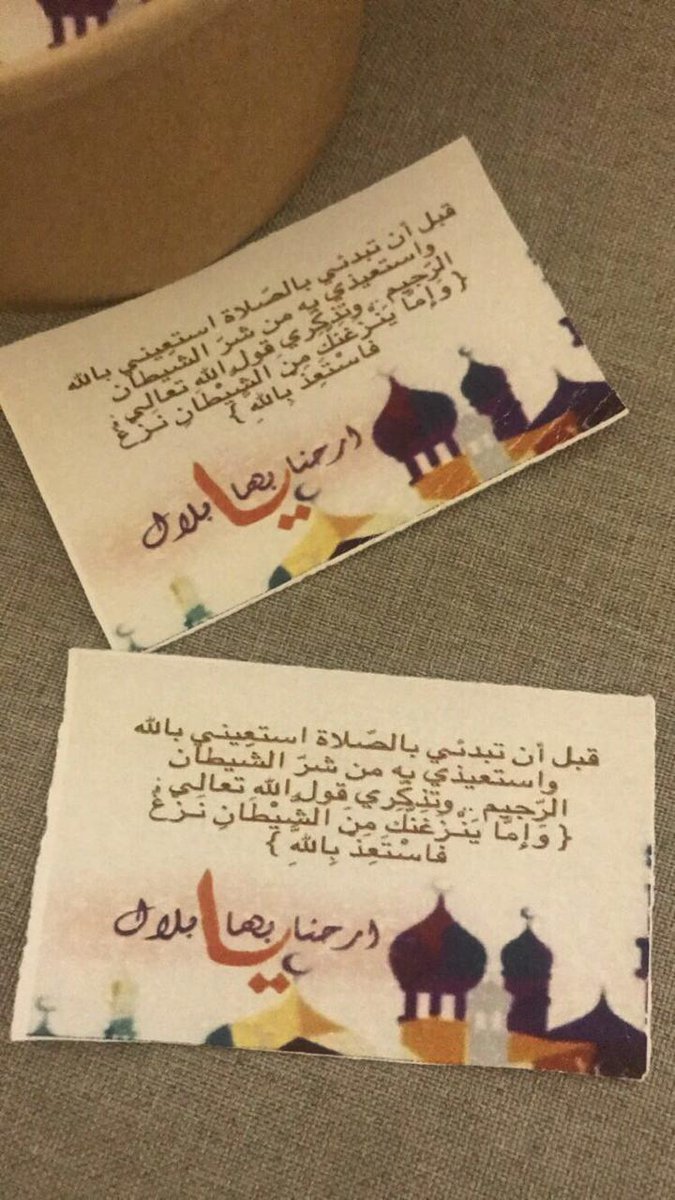 قبل أن تبدئي بالصَلاة استعِيني بالله
واستعيذي به من شرّ الشيطان
الرّجيم .. وتذكِّري قول الله تعالى
{ وَإِمَّا يَنْزَغَنَّكَ مِنَ الشَّيْطَانِ نَزْغٌ
فَاسْتَعِذْ بِاللَّهِ }
ارحنا بها يا بلال
قبل أن تبدئي بالصَلاة استعِيني بالله
واستعيذي به من شرّ الشيطان
الرّجيم .. وتذكِّري قول الله تعالى
{ وَإِمَّا يَنْزَغَنَّكَ مِنَ الشَّيْطَانِ نَزْغٌ
فَاسْتَعِذْ بِاللَّهِ }
ارحنا بها يا بلال